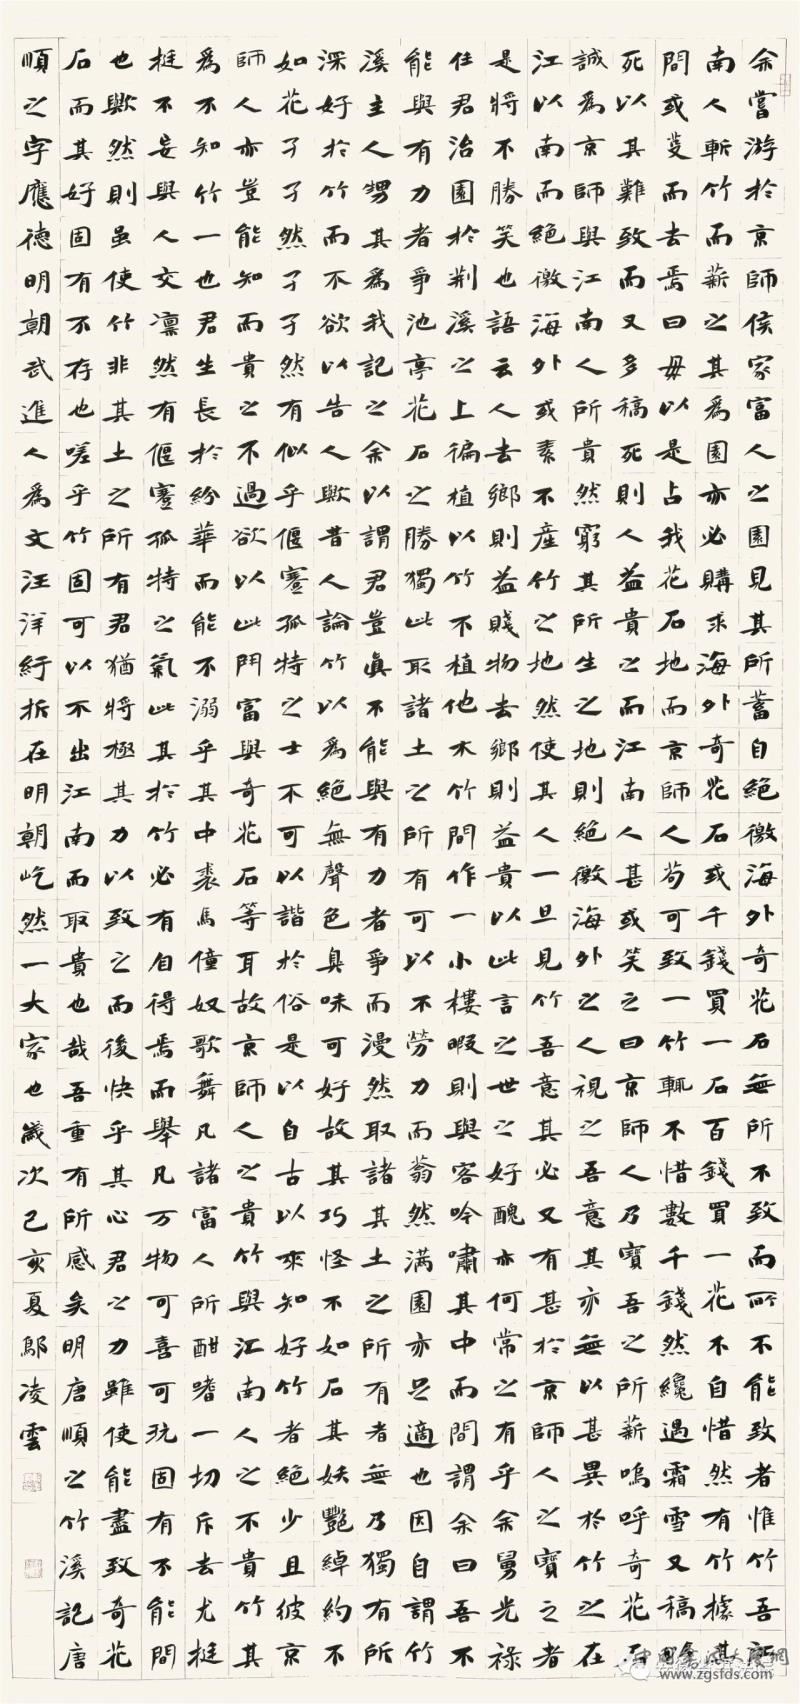 余嘗游於京師侯家富人之園見其所蓄自絕徼海外奇花石無所不致而所不能致者惟竹吾江
南人斬竹而薪之其爲園亦必購求海外奇花石或千錢買一石百錢買一花不自惜然有竹據其
問或芟而去焉曰毋以是占我花石地而京師人苟可致一竹輒不惜數千錢然纔遇霜雪又稿
死以其難致而又多稿死則人益貴之而江南人甚或笑之曰京師人乃寶吾之所薪嗚呼奇花石
誠爲京師與江南人所貴然窮其所生之地則絕徼海外之人視之吾意其亦無以甚異於竹之在
江以南而絕徼海外或素不產竹之地然使其人一旦見竹吾意其必又有甚於京師人之寶之者
是將不勝笑也語云人去鄉則益賤物去鄉則益貴以此言之世之好醜亦何常之有乎余舅光祿
任君治園於荆溪之上徧植以竹不植他木竹間作一小樓暇則與客吟嘯其中而間謂余曰吾不
能與有力者爭池亭花石之勝獨此取諸土之所有可以不勞力而蓊然滿園亦足適也因自謂竹
溪主人甥其爲我記之余以謂君豈真不能與有力者爭而漫然取諸其土之所有者無乃獨有所
深好於竹而不欲以告人歟昔人論竹以爲絕無聲色臭味可好故其巧怪不如石其妖艷綽約不
如花孑孑然孑孑然有似乎偃蹇孤特之士不可以諧於俗是以自古以來知好竹者絕少且彼京
師人亦豈能知而貴之不過欲以此鬥富與奇花石等耳故京師人之貴竹與江南人之不貴竹其
爲不知竹一也君生長於紛華而能不溺乎其中裘馬僮奴歌舞凡諸富人所酣嗜一切斥去尤挺
挺不妄與人交凜然有偃蹇孤特之氣此其於竹必有自得焉而舉凡万物可喜可玩固有不能間
也歟然則虽使竹非其土之所有君猶將極其力以致之而後快乎其心君之力雖使能盡致奇花
石而其好固有不存也嗟乎竹固可以不出江南而取貴也哉吾重有所感矣明唐順之竹溪記唐
順之字應德明朝武進人爲文汪洋紆折在明朝屹然一大家也歲次己亥夏鄔凌雲
www.zgsfds.com